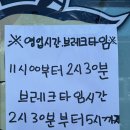 ※영업시간 브레크타임※
11시00부터 2시30분
브레크 타임시간
2시30분 부터 5시까지